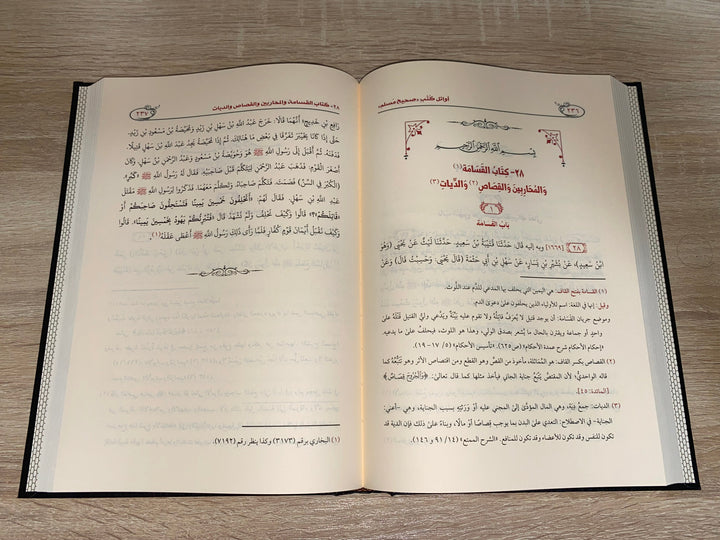 ٢٣٦
أوائل كتب «صحيح مسلم»
بِسْمِ اللَّهِ الرَّحْمَنِ الرَّحِيمِ
٢٨- كِتَابُ القَسَامَةِ (١)
وَالمُحَارِبِينَ وَالقِصَاصِ (٢) وَالدِّيَاتِ (٣)
١
بَابُ القَسَامَةِ
[٢٨] [١٦٦٩] وبه إليه قال حَدَّثَنَا قُتَيْبَةُ بْنُ سَعِيدٍ، حَدَّثَنَا لَيْثٌ عَنْ يَحْيَى (وَهُوَ
ابْنُ سَعِيدٍ)، عَنْ بُشَيْرِ بْنِ يَسَارٍ، عَنْ سَهْلِ بْنِ أَبِي حَثْمَةَ (قَالَ يَحْيَى: وَحَسِبْتُ قَالَ) وَعَنْ
(١) القسامة بفتح القاف: هي اليمين التي يحلف بها المدعي للدَّم عند اللَّوث.
وقيل: إنها في اللغة: اسم للأولياء الذين يحلفون على دعوى الدم.
وموضع جريان القسامة: أن يوجد قتيل لا يُعرَف قاتِلُهُ ولا تقوم عليه بَيِّنَةٌ ويدَّعي ولي القتيل قتلَهُ على
واحدٍ أو جماعة ويقترن بالحال ما يُشعر بصدق الولي، وهذا هو اللوث، فيحلفُ على ما يدعيه.
«إحكام الأحكام شرح عمدة الأحكام» (ص٦٢٥). «تأسيس الأحكام» (٥/ ١٧-١٩).
(٢) القصاص بكسر القاف: هو المُمَاثَلة، مأخوذ من القصِّ وهو القطع ومن اقتصاص الأثر وهو تَتَبُّعُهُ كما
قاله الواحديُّ؛ لأن المقتصَّ يَتْبَعُ جناية الجاني فيأخذ مثلها كما قال تعالى: ﴿وَالْجُرُوحَ قِصَاصٌ﴾
[المائدة: ٤٥].
(٣) الديات: جمعُ دِيَة، وهي المال المؤدَّى إلى المجني عليه أوْ وَرَثَتِهِ بسبب الجناية، وهي –أعني:
الجناية– في الاصطلاح: التعدي على البدن بما يوجب قصاصًا أوْ مالًا، وبناءً على ذلك فإن الدية قد
تكون للنفس وقد تكون للأعضاء وقد تكون للمنافع. «الشرح الممتع» (١٤/ ٩١ و١٤٦).
٢٨- كتاب القسامة والمحاربين والقصاص والديات
٢٣٧
رَافِعِ بْنِ خَدِيجٍ؛ أَنَّهُمَا قَالَا: خَرَجَ عَبْدُ اللهِ بْنُ سَهْلِ بْنِ زَيْدٍ وَمُحَيِّصَةُ بْنُ مَسْعُودِ بْنِ زَيْدٍ.
حَتَّى إِذَا كَانَا بِخَيْبَرَ تَفَرَّقَا فِي بَعْضِ مَا هُنَالِكَ. ثُمَّ إِذَا مُحَيِّصَةُ يَجِدُ عَبْدَ اللهِ بْنَ سَهْلٍ قَتِيلًا.
فَدَفَنَهُ. ثُمَّ أَقْبَلَ إِلَى رَسُولِ اللهِ ﷺ هُوَ وَحُوَيِّصَةُ بْنُ مَسْعُودٍ وَعَبْدُ الرَّحْمَنِ بْنُ سَهْلٍ. وَكَانَ
أَصْغَرَ القَوْمِ. فَذَهَبَ عَبْدُ الرَّحْمَنِ لِيَتَكَلَّمَ قَبْلَ صَاحِبَيْهِ. فَقَالَ لَهُ رَسُولُ اللهِ ﷺ «كَبِّرِ».
(الكُبْرَ فِي السِّنِّ) فَصَمَتَ. فَتَكَلَّمَ صَاحِبَاهُ. وَتَكَلَّمَ مَعَهُمَا. فَذَكَرُوا لِرَسُولِ اللهِ ﷺ مَقْتَلَ
عَبْدِ اللهِ بْنِ سَهْلٍ. فَقَالَ لَهُمْ: «أَتَحْلِفُونَ خَمْسِينَ يَمِينًا فَتَسْتَحِقُّونَ صَاحِبَكُمْ أَوْ
قَاتِلَكُمْ؟» قَالُوا: وَكَيْفَ نَحْلِفُ وَلَمْ نَشْهَدْ. قَالَ: «فَتُبْرِئُكُمْ يَهُودُ بِخَمْسِينَ يَمِينًا». قَالُوا:
وَكَيْفَ نَقْبَلُ أَيْمَانَ قَوْمٍ كُفَّارٍ فَلَمَّا رَأَى ذَلِكَ رَسُولُ اللهِ ﷺ أَعْطَى عَقْلَهُ (١).
(١) البخاري برقم (٣١٧٣) وكذا ينظر رقم (٧١٩٢).